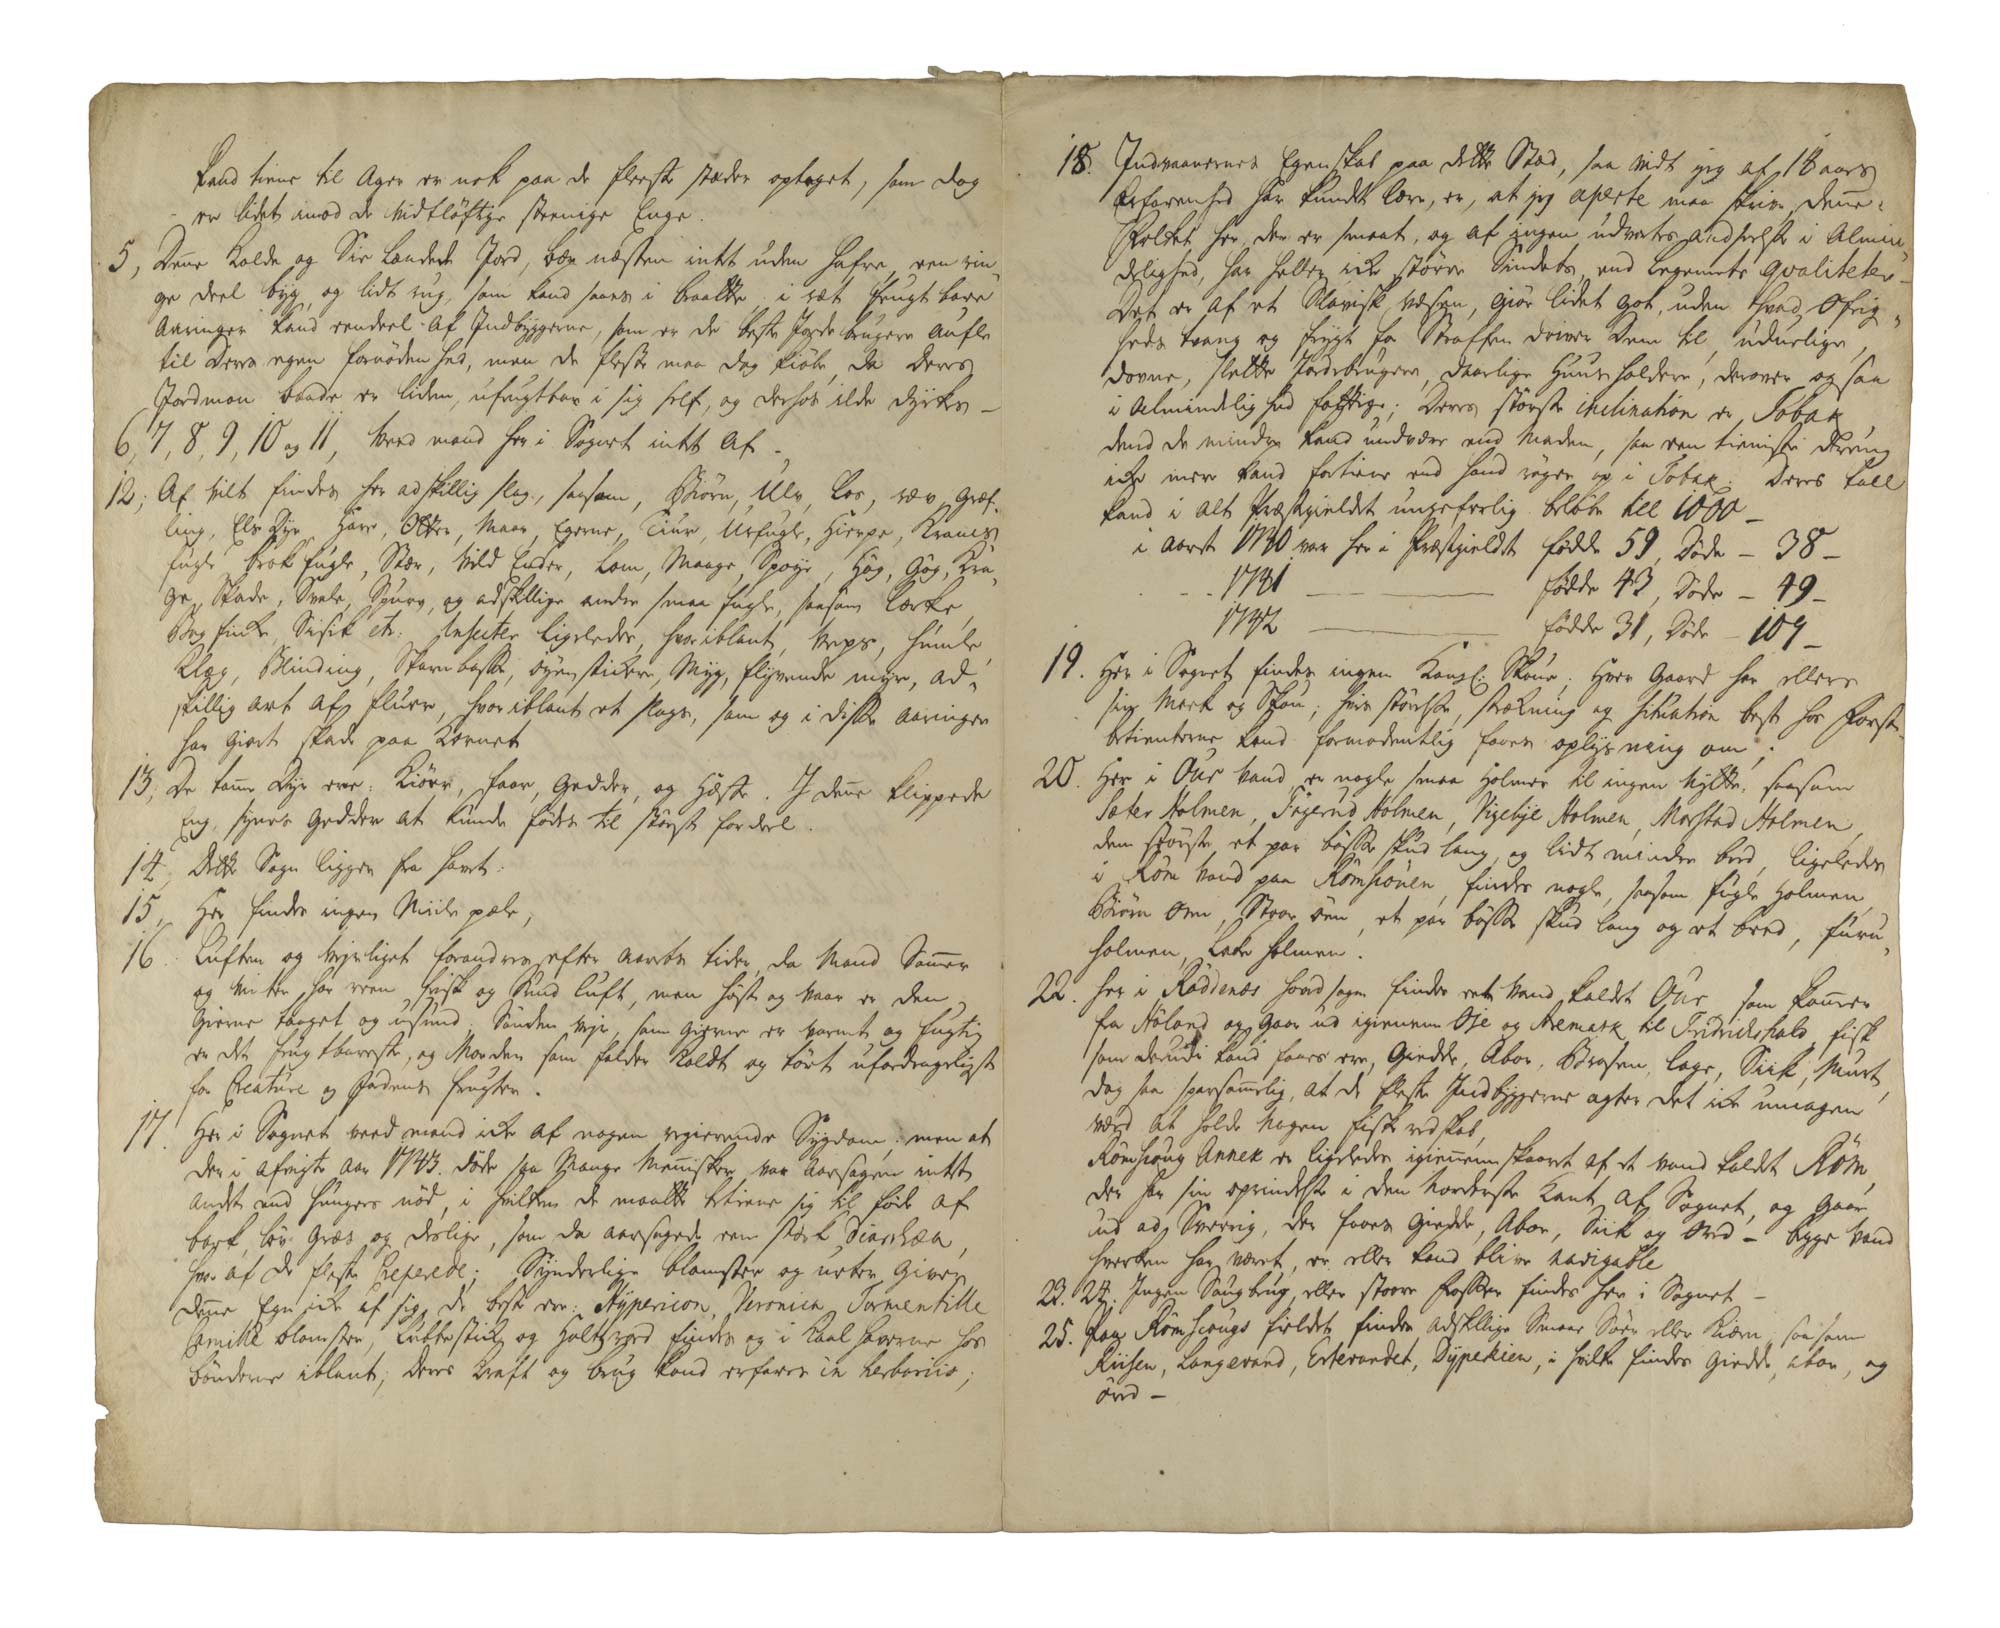 kand tiene til Ager er nok paa de fleeste stæder optaget, som dog
er lidet imod de vidtløftige steenige Enge.
5, Denne Kolde og Sie lændede Jord, bær næsten intet uden hafre, een rin„
ge deel byg, og lidt rug, som kand saaes i braatte. i ræt frugtbare
Aaringer kand eendeel af Indbyggerne, som er de beste Jordebrugere aufle
til deres egen fornødenhed, men de fleste maa dog kiøbe, da deres
Jordmon baade er liden, ufrugtbar i sig self, og derhos ilde dyrkes –
6, 7, 8, 9, 10 og 11, veed mand her i Sognet intet af –
12, Af vilt findes her adskillig slag, saasom, Biörn, Ulv, Los, ræv, græf„
ling, Els Dyr, Hare, Otter, Maar, Egerne, Tiur, Urfugle, Hierpe, Kramss
fugle, brokfugle, Stær, vild Ender, Lom, Maage, Spoye, Høg, Gøg, Kra„
ge, Skade, Svale, Spurv, og adskillige andre smaa fugle, saasom Lærke,
Bogfinke, Sisik etc: Insecter ligeledes, hvoriblant, veps, humle,
Klæg, Blinding, Skarnbasse, øyenstikere, Myg, flyvende myre, ad„
skillig art af fluer, hvoriblant et slags, som og i disse aaringer
har giort skade paa Kornet
13, De tamme dyr ere: Kiöer, faar, gedder, og Hæste. I denne klippede
Eng, synes gedder at kunde födes til störst fordeel.
14, Dette Sogn ligger fra havet.
15, Her findes ingen Miile pæle,
16. Luften og veyrliget forandres efter aarets tider, da Mand Sommer
og vinter har reen, frisk og sund luft, men høst og vaar er den
gierne taaget og usund. Sönden veyr, som gierne er varmt og fugtig
er det frugtbareste, og Norden som falder koldt og tört ufordrageligst
for Creature og Jordens frugter.
17. Her i Sognet veed mand icke af nogen regierende Sygdom; men at
der i afvigte aar 1743. døde saa Mange Mennisker, var aarsagen intet
andet end hungers nöd, i hvilken de maatte betiene sig til føde af
bark, löv, græs og deslige, som da aarsagede een stærk Diarrhæa,
hvor af de fleste Creperede; Synderlige blomster og urter giver
denne Egn icke af sig, de beste ere: Hypericon, Veronica, Tormentille
Camille blomster, Lubbestick, og Holtzverd findes og i Kaal haverne hos
bönderne iblant; deres Kraft og brug kand erfares in herbariis;
18. Indvaanernes Egenskab paa dette Stæd, saa vidt jeg af 18 aars
Erfarenhed har kundet lære, er, at jeg aperte maa skrive, denne
folket her, der er smaat, og af ingen udvortes andseelse i Almin„
delighed, har heller icke större Sindets, end Legemets qvaliteter –
Det er af et Slavisk væsen, giør lidet got, uden hvad Öfrig„
heds tvang og frygt for Straffen driver dem til, uduelige,
dovne, slette Jordebrugere, daarlige Huusholdere, derover og saa
i almindelighed fattige; Deres störste inclination er Tobak,
dend de mindre kand undvære end Maden, saa een tieniste dreng
icke mere kand fortiene end hand røger op i Tobak. Deres tall
kand i alt Præstegieldet ungeferlig beløbe till 1000 –
i aaret 1740 var her i Præstegieldet fødde 59, Døde – 38 –
– – 1741 ——— fødde 43, Døde – 49 –
1742 ——— fødde 31, Døde – 109 –
19. Her i Sognet findes ingen Kongl: Skoue; Hver Gaard har ellers
sin Mark og Skou; hvis størelse, strækning og situation best hos Forst„
betienterne kand formodentlig faaes oplysning om;
20. Her i Öur vand er nogle smaa Holmer til ingen Nytte, saasom
Sæter Holmen, Fagerud Holmen, Vigebye Holmen, Morstad Holmen,
dem störste et par bøsse skud lang, og lidt minder bred, ligeledes
i Röm vand paa Römsiöuen, findes nogle, saasom fugle Holmen,
Biörn öen, Stoor öen, et par bøsse skud lang og et bred, furu„
holmen, Lake holmen.
22. her i Röddenæs hoved sogn findes eet vand kaldet Öur, som kommer
fra Höland og gaar ud igiennem Öje og Aremark til Fridrichshald, fisk
som derudi kand faaes ere, Giedde, Abor, Brasen, Lage, Siik, Murt,
dog saa sparsommelig, at de fleste Indbyggerne agter det icke umagen
værd at holde nogen fiske redskab,
Römsioug Annex er ligeledes igiennemskaaret af et vand kaldet Röm,
der har sin oprindelse i den Norderste Kant af Sognet, og gaar
ud ad Sverrig, der faaes giedde, Abor, Siik og Öred – begge vand
hverken har været, er eller kand blive navigable
23. 24. Ingen Saugbrug, eller stoore fosser findes her i Sognet –
25. Paa Römsiougs fieldet findes adskillige Smaae Söer eller Kiærn, saasom
Riisen, Langevand, Ertevandet, Dypekien, i hvilke findes Giedde, abor, og
öred –